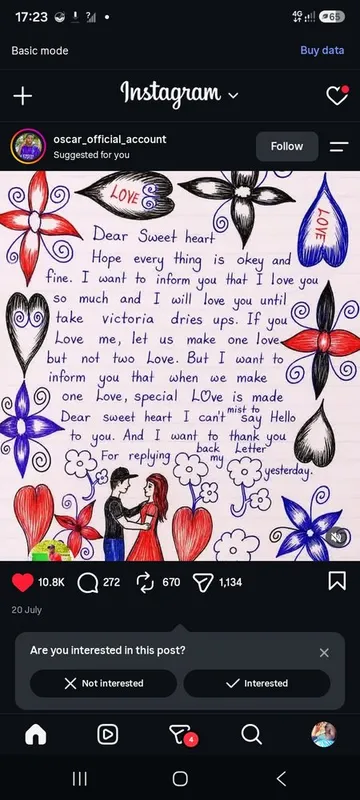 17:23
4G
65
Basic mode
Buy data
Instagram
oscar_official_account
Suggested for you
Follow
LOVE
LOVE
Dear Sweet heart
Hope every thing is okey and
fine. I want to inform you that I love you
so much and I will love you until
take victoria dries ups. If you
Love me, let us make one love
but not two Love. But I want to
inform you that when we make
one Love, special LOve is made
Dear sweet heart I can't mist to say Hello
to you. And I want to thank you
For replying back my Letter
yesterday.
10.8K
272
670
1,134
20 July
Are you interested in this post?
Not interested
Interested
4